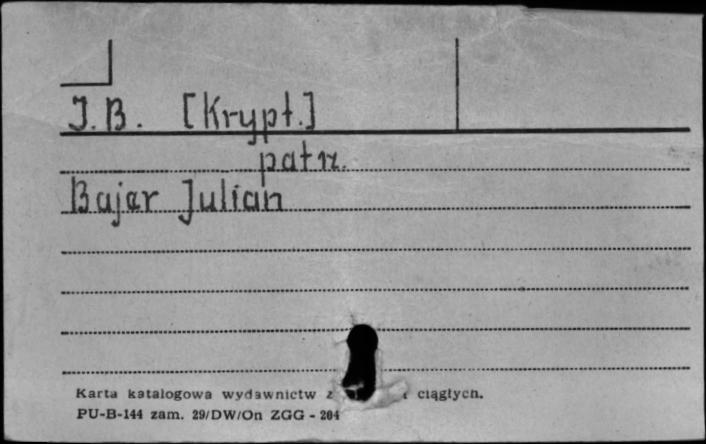 J.B. [Krypt.]
patrz.
Bajer Julian
Karta katalogowa wydawnictw z ciągłych.
PU-B-144 zam. 29/DW/On ZGG - 204